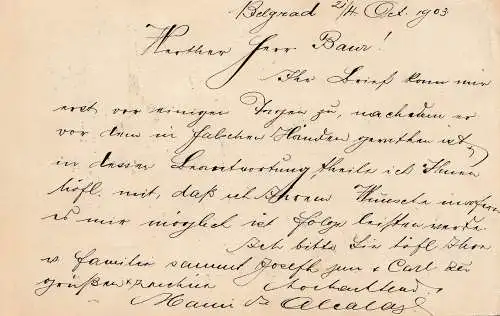 Belgrad 21/4 Oct. 1903
Werther Herr Baur!
Ihr Brief kam mir
erst vor einigen Tagen zu, nachdem er
vor dem in falschen Händen gerathen ist,
in dessen Beantwortung theile ich Ihnen
höfl. mit, daß ich Ihrem Wunsche insofern
es mir möglich ist folge leisten werde
Ich bitte Sie höfl. Ihre
w familie sammt Joseph jun & Carl bes
grüßen & zeichne Hochachtend
de Alcalay